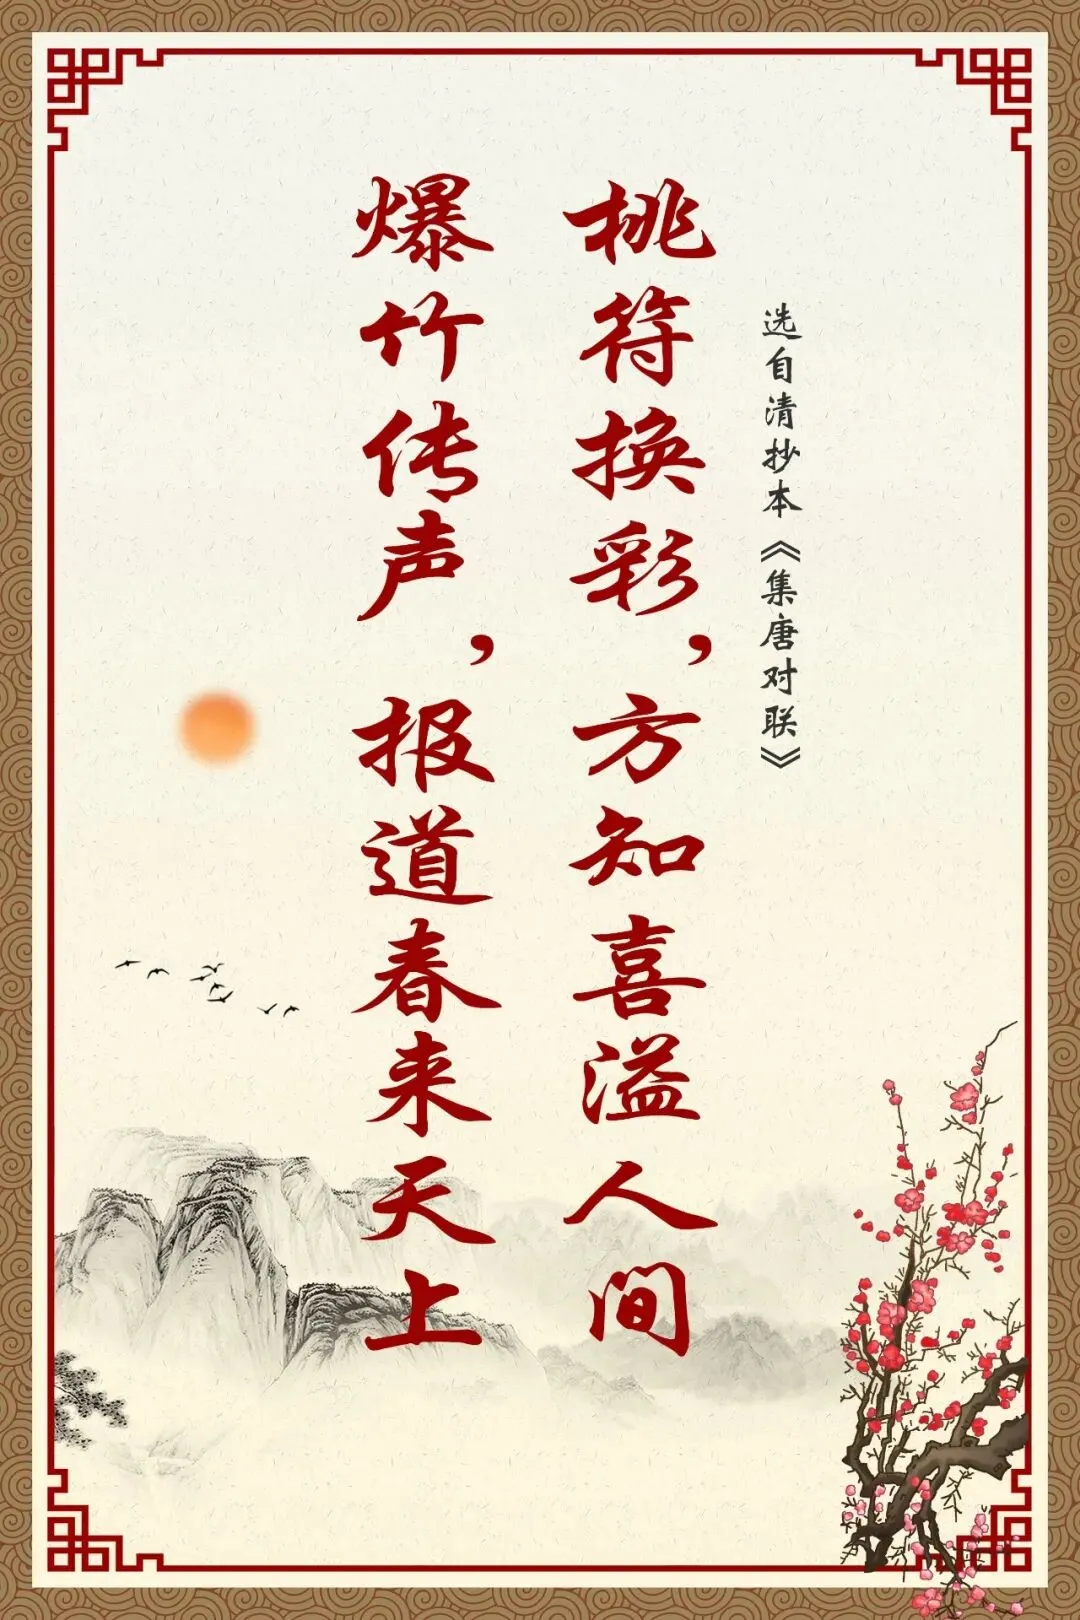 选自清抄本《集唐对联》
桃符换彩，方知喜溢人间
爆竹传声，报道春来天上